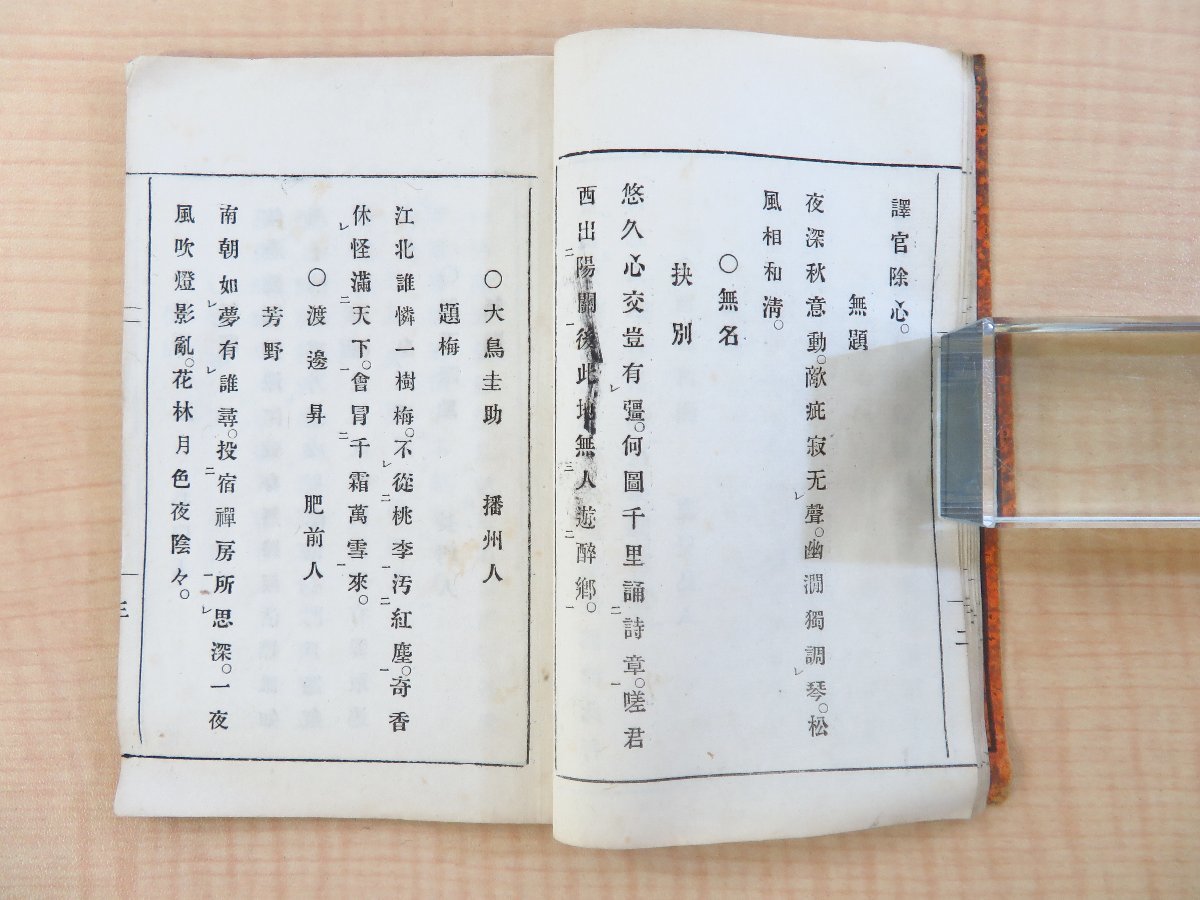 譯官除心。
無題
夜深秋意動。敵疵寂无聲。幽澗獨調琴。松
風相和淸。
〇無名
抉別
悠久心交豈有彊。何圖千里誦詩章。嗟君
西出陽關後此地無人遊醉鄉。
二
〇大鳥圭助 播州人
題梅
江北誰憐一樹梅。不從桃李汚紅塵。奇香
休怪滿天下。會冒千霜萬雪來。
〇渡邊昇 肥前人
芳野
南朝如夢有誰尋。投宿禪房所思深。一夜
風吹燈影亂。花林月色夜陰々。
三